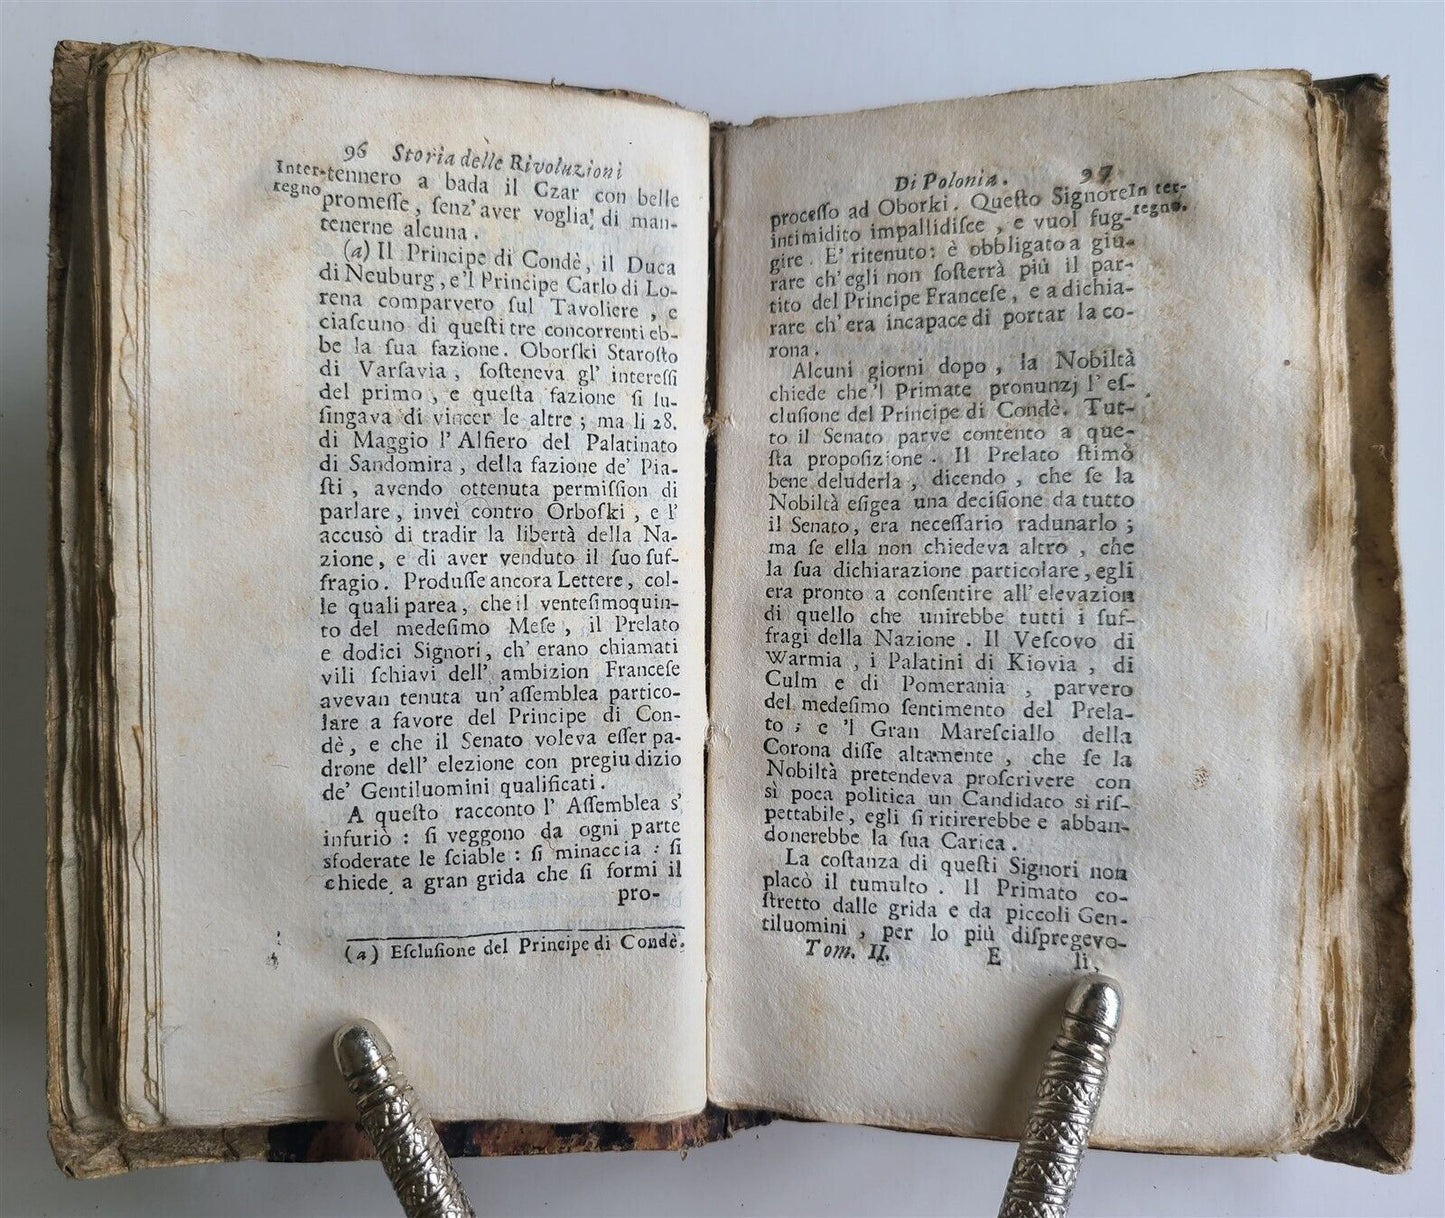 96 Storia delle Rivoluzioni
Inter-
regno
tennero a bada il Czar con belle
promeſſe, ſenz'aver voglia di man-
tenerne alcuna.
(a) Il Principe di Condè, il Duca
di Neuburg, e'l Principe Carlo di Lo-
rena comparvero ſul Tavoliere, e
ciaſcuno di queſti tre concorrenti eb-
be la ſua fazione. Oborſki Staroſto
di Varſavia, ſoſteneva gl' intereſſi
del primo, e queſta fazione ſi lu-
ſingava di vincer le altre; ma li 28.
di Maggio l'Alfiero del Palatinato
di Sandomira, della fazione de' Pia-
ſti, avendo ottenuta permiſſion di
parlare, inveì contro Orboſki, e l'
accusò di tradir la libertà della Na-
zione, e di aver venduto il ſuo ſuf-
fragio. Produſſe ancora Lettere, col-
le quali parea, che il venteſimoquin-
to del medeſimo Meſe, il Prelato
e dodici Signori, ch'erano chiamati
vili ſchiavi dell' ambizion Franceſe
avevan tenuta un'aſſemblea partico-
lare a favore del Principe di Con-
dè, e che il Senato voleva eſſer pa-
drone dell' elezione con pregiudizio
de' Gentiluomini qualificati.
A queſto racconto l' Aſſemblea s'
infuriò: ſi veggono da ogni parte
sfoderate le ſciable: ſi minaccia: ſi
chiede a gran grida che ſi formi il
pro-
(a) Eſcluſione del Principe di Condè.
Di Polonia. 97
In ter-
regno.
proceſſo ad Oborki. Queſto Signore
intimidito impallidiſce, e vuol fug-
gire. E' ritenuto: è obbligato a giu-
rare ch'egli non ſoſterrà più il par-
tito del Principe Franceſe, e a dichia-
rare ch'era incapace di portar la co-
rona.
Alcuni giorni dopo, la Nobiltà
chiede che 'l Primate pronunzj l'eſ-
cluſione del Principe di Condè. Tut-
to il Senato parve contento a que-
ſta propoſizione. Il Prelato ſtimò
bene deluderla, dicendo, che ſe la
Nobiltà eſigea una deciſione da tutto
il Senato, era neceſſario radunarlo;
ma ſe ella non chiedeva altro, che
la ſua dichiarazione particolare, egli
era pronto a conſentire all'elevazion
di quello che unirebbe tutti i ſuf-
fragi della Nazione. Il Veſcovo di
Warmia, i Palatini di Kiovia, di
Culm e di Pomerania, parvero
del medeſimo ſentimento del Prela-
to; e 'l Gran Mareſciallo della
Corona diſſe altamente, che ſe la
Nobiltà pretendeva proſcrivere con
sì poca politica un Candidato sì riſ-
pettabile, egli ſi ritirerebbe e abban-
donerebbe la ſua Carica.
La coſtanza di queſti Signori non
placò il tumulto. Il Primato co-
ſtretto dalle grida e da piccoli Gen-
tiluomini, per lo più diſpregevo-
Tom. II. E li,